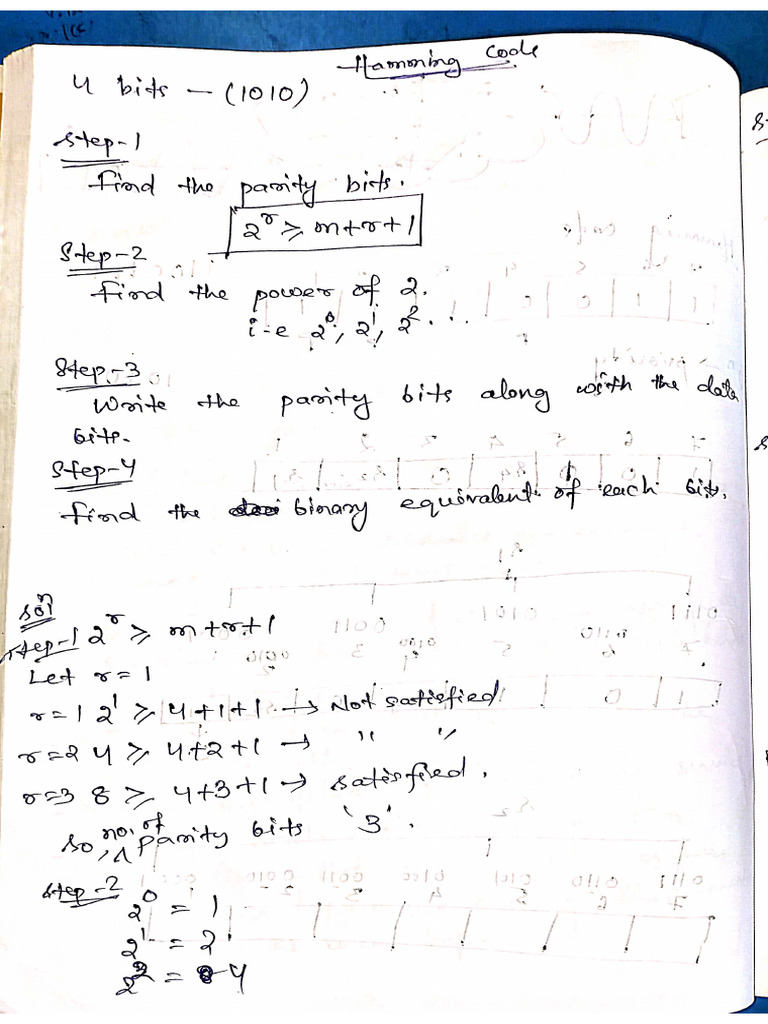 Hamming Code
4 bits - (1010)
Step-1
Find the parity bits.
2^r ≥ m+r+1
Step-2
Find the power of 2.
i-e 2^0, 2^1, 2^2...
Step-3
Write the parity bits along with the data
bits.
Step-4
Find the binary equivalent of each bit.
Sol^n
Step-1 2^r ≥ m+r+1
Let r=1
r=1 2^1 ≥ 4+1+1 → Not satisfied
r=2 4 ≥ 4+2+1 → " "
r=3 8 ≥ 4+3+1 → satisfied.
so, no. of parity bits '3'.
Step-2
2^0 = 1
2^1 = 2
2^2 = 4